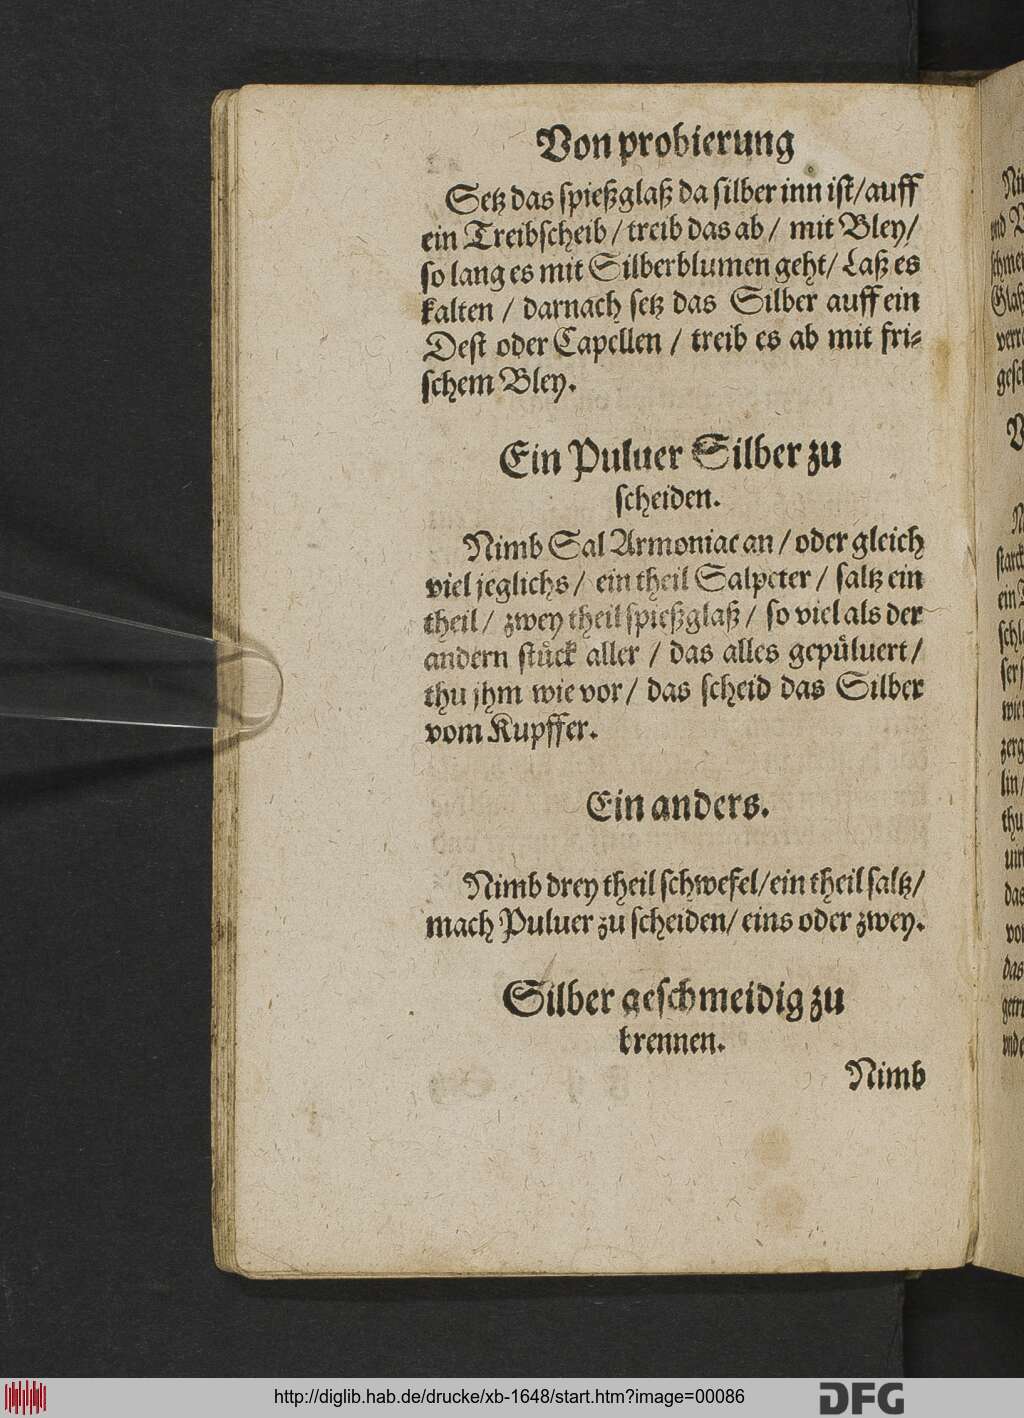 Von probierung
Setz das spießglaß da silber inn ist/auff
ein Treibscheib/ treib das ab/ mit Bley/
so lang es mit Silberblumen geht/ Laß es
kalten / darnach setz das Silber auff ein
Dest oder Capellen / treib es ab mit fri-
schem Bley.
Ein Puluer Silber zu
scheiden.
Nimb Sal Armoniac an / oder gleich
viel jeglichs / ein theil Salpeter / saltz ein
theil / zwey theil spießglaß / so viel als der
andern stück aller / das alles gepüluert /
thu jhm wie vor / das scheid das Silber
vom Kupffer.
Ein anders.
Nimb drey theil schwefel/ein theil saltz/
mach Puluer zu scheiden/ eins oder zwey.
Silber geschmeidig zu
brennen.
Nimb
http://diglib.hab.de/drucke/xb-1648/start.htm?image=00086
DFG